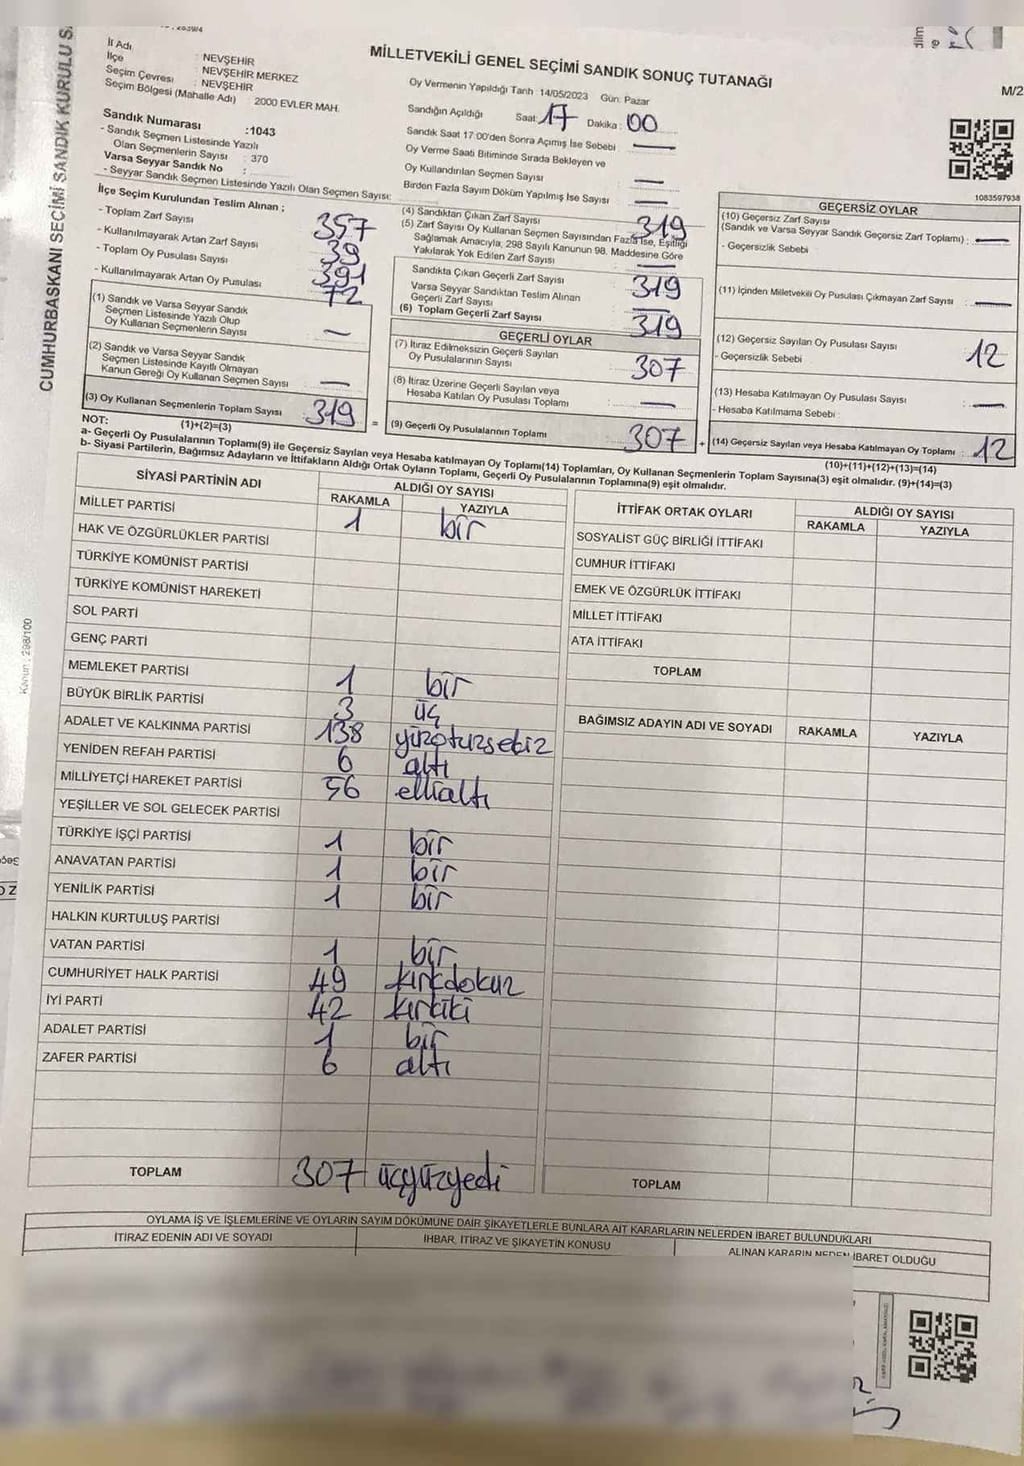 CUMHURBAŞKANI SEÇİMİ SANDIK KURULU S
MİLLETVEKİLİ GENEL SEÇİMİ SANDIK SONUÇ TUTANAĞI
M/2
İl Adı : NEVŞEHİR
İlçe : NEVŞEHİR MERKEZ
Seçim Çevresi : NEVŞEHİR
Seçim Bölgesi (Mahalle Adı) 2000 EVLER MAH.
Sandık Numarası :1043
- Sandık Seçmen Listesinde Yazılı
Olan Seçmenlerin Sayısı : 370
Varsa Seyyar Sandık No :
- Seyyar Sandık Seçmen Listesinde Yazılı Olan Seçmen Sayısı:
Oy Vermenin Yapıldığı Tarih :14/05/2023 Gün: Pazar
Sandığın Açıldığı Saat: 17 Dakika: 00
Sandık Saat 17:00'den Sonra Açılmış İse Sebebi —
Oy Verme Saati Bitiminde Sırada Bekleyen ve
Oy Kullandırılan Seçmen Sayısı —
Birden Fazla Sayım Döküm Yapılmış İse Sayısı —
1083597938
İlçe Seçim Kurulundan Teslim Alınan ;
- Toplam Zarf Sayısı 357
- Kullanılmayarak Artan Zarf Sayısı 39
- Toplam Oy Pusulası Sayısı 391
- Kullanılmayarak Artan Oy Pusulası 72
(1) Sandık ve Varsa Seyyar Sandık
Seçmen Listesinde Yazılı Olup
Oy Kullanan Seçmenlerin Sayısı —
(2) Sandık ve Varsa Seyyar Sandık
Seçmen Listesinde Kayıtlı Olmayan
Kanun Gereği Oy Kullanan Seçmen Sayısı —
(3) Oy Kullanan Seçmenlerin Toplam Sayısı : 319
(1)+(2)=(3)
(4) Sandıktan Çıkan Zarf Sayısı 319
(5) Zarf Sayısı Oy Kullanan Seçmen Sayısından Fazla İse, Eşitliği
Sağlamak Amacıyla, 298 Sayılı Kanunun 98. Maddesine Göre
Yakılarak Yok Edilen Zarf Sayısı —
Sandıkta Çıkan Geçerli Zarf Sayısı 319
Varsa Seyyar Sandıktan Teslim Alınan
Geçerli Zarf Sayısı —
(6) Toplam Geçerli Zarf Sayısı 319
GEÇERLİ OYLAR
(7) İtiraz Edilmeksizin Geçerli Sayılan
Oy Pusulalarının Sayısı 307
(8) İtiraz Üzerine Geçerli Sayılan veya
Hesaba Katılan Oy Pusulası Toplamı —
= (9) Geçerli Oy Pusulalarının Toplamı 307
GEÇERSİZ OYLAR
(10) Geçersiz Zarf Sayısı
(Sandık ve Varsa Seyyar Sandık Geçersiz Zarf Toplamı) : —
- Geçersizlik Sebebi :
(11) İçinden Milletvekili Oy Pusulası Çıkmayan Zarf Sayısı : —
(12) Geçersiz Sayılan Oy Pusulası Sayısı : 12
- Geçersizlik Sebebi :
(13) Hesaba Katılmayan Oy Pusulası Sayısı : —
- Hesaba Katılmama Sebebi :
+ (14) Geçersiz Sayılan veya Hesaba Katılmayan Oy Toplamı : 12
(10)+(11)+(12)+(13)=(14)
NOT:
a- Geçerli Oy Pusulalarının Toplamı(9) ile Geçersiz Sayılan veya Hesaba katılmayan Oy Toplamı(14) Toplamları, Oy Kullanan Seçmenlerin Toplam Sayısına(3) eşit olmalıdır. (9)+(14)=(3)
b- Siyasi Partilerin, Bağımsız Adayların ve İttifakların Aldığı Ortak Oyların Toplamı, Geçerli Oy Pusulalarının Toplamına(9) eşit olmalıdır.
SİYASİ PARTİNİN ADI
ALDIĞI OY SAYISI
RAKAMLA YAZIYLA
MİLLET PARTİSİ 1 bir
HAK VE ÖZGÜRLÜKLER PARTİSİ
TÜRKİYE KOMÜNİST PARTİSİ
TÜRKİYE KOMÜNİST HAREKETİ
SOL PARTİ
GENÇ PARTİ
MEMLEKET PARTİSİ 1 bir
BÜYÜK BİRLİK PARTİSİ 3 üç
ADALET VE KALKINMA PARTİSİ 138 yüzotuzsekiz
YENİDEN REFAH PARTİSİ 6 altı
MİLLİYETÇİ HAREKET PARTİSİ 56 ellialtı
YEŞİLLER VE SOL GELECEK PARTİSİ
TÜRKİYE İŞÇİ PARTİSİ 1 bir
ANAVATAN PARTİSİ 1 bir
YENİLİK PARTİSİ 1 bir
HALKIN KURTULUŞ PARTİSİ
VATAN PARTİSİ 1 bir
CUMHURİYET HALK PARTİSİ 49 kırkdokuz
İYİ PARTİ 42 kırkiki
ADALET PARTİSİ 1 bir
ZAFER PARTİSİ 6 altı
TOPLAM 307 üçyüzyedi
İTTİFAK ORTAK OYLARI
ALDIĞI OY SAYISI
RAKAMLA YAZIYLA
SOSYALİST GÜÇ BİRLİĞİ İTTİFAKI
CUMHUR İTTİFAKI
EMEK VE ÖZGÜRLÜK İTTİFAKI
MİLLET İTTİFAKI
ATA İTTİFAKI
TOPLAM
BAĞIMSIZ ADAYIN ADI VE SOYADI RAKAMLA YAZIYLA
TOPLAM
OYLAMA İŞ VE İŞLEMLERİNE VE OYLARIN SAYIM DÖKÜMÜNE DAİR ŞİKAYETLERLE BUNLARA AİT KARARLARIN NELERDEN İBARET BULUNDUKLARI
İTİRAZ EDENİN ADI VE SOYADI
İHBAR, İTİRAZ VE ŞİKAYETİN KONUSU
ALINAN KARARIN NEDEN İBARET OLDUĞU
Kanun : 298/100